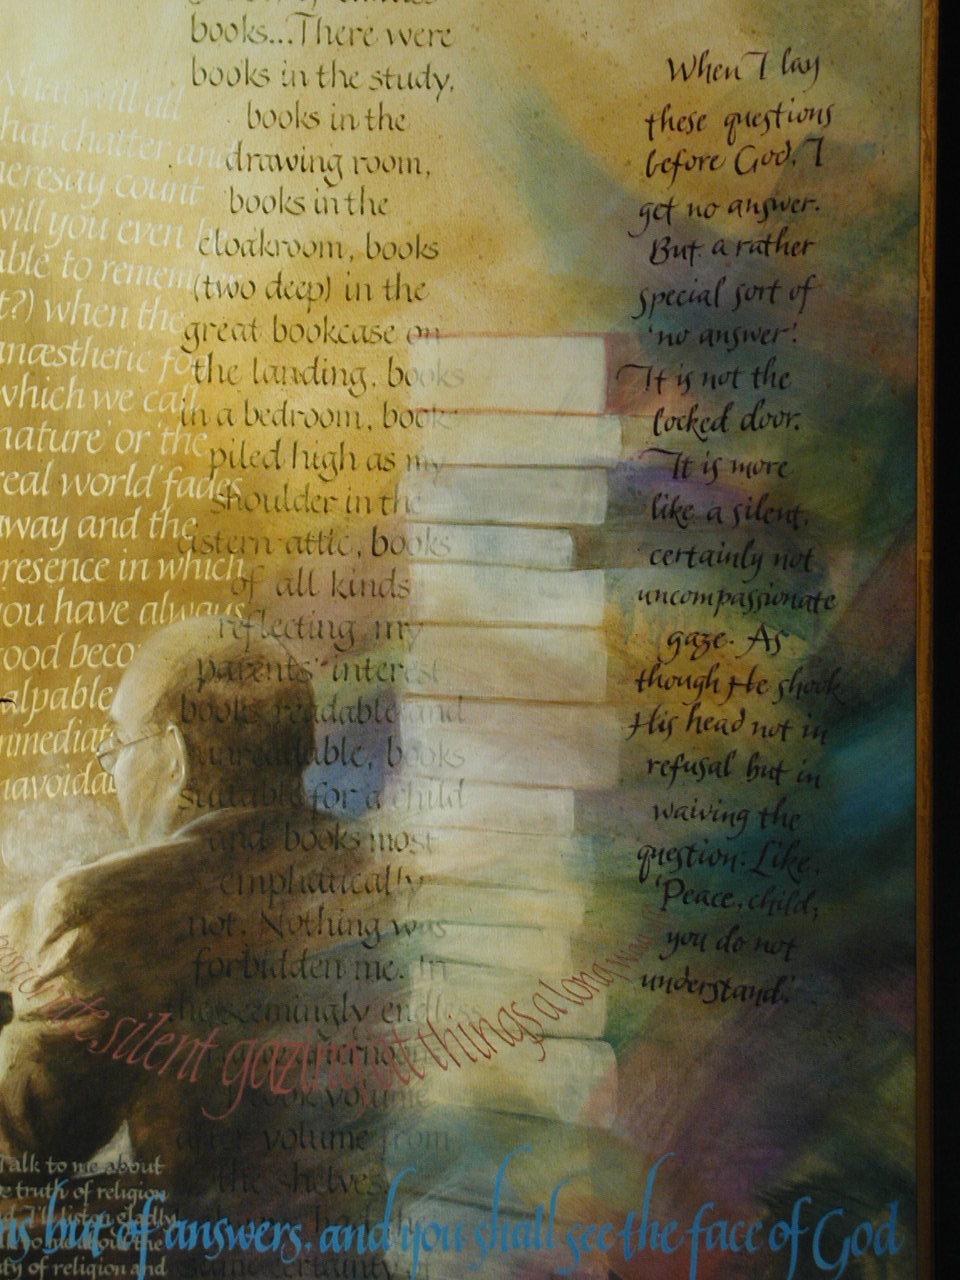 books...There were
books in the study,
books in the
drawing room,
books in the
cloakroom, books
(two deep) in the
great bookcase on
the landing, books
in a bedroom, books
piled high as my
shoulder in the
cistern attic, books
of all kinds
reflecting my
parents' interest
books readable and
unreadable, books
suitable for a child
and books most
emphatically
not. Nothing was
forbidden me. In
the seemingly endless
afternoons
I took volume
after volume from
the shelves
same certainty of
what will all
that chatter and
heresay count
will you even be
able to remember
it?) when the
anæsthetic fog
which we call
'nature' or 'the
real world' fades
away and the
presence in which
you have always
stood becomes
palpable
immediate
unavoidable
When I lay
these questions
before God, I
get no answer.
But a rather
special sort of
'no answer'.
It is not the
locked door.
It is more
like a silent,
certainly not
uncompassionate
gaze. As
though He shook
His head not in
refusal but in
waiving the
question. Like,
'Peace, child;
you do not
understand.'
passionate, silent gazing at things a long way
Talk to me about
the truth of religion
and I'll listen gladly
of religion and
of answers. and you shall see the face of God